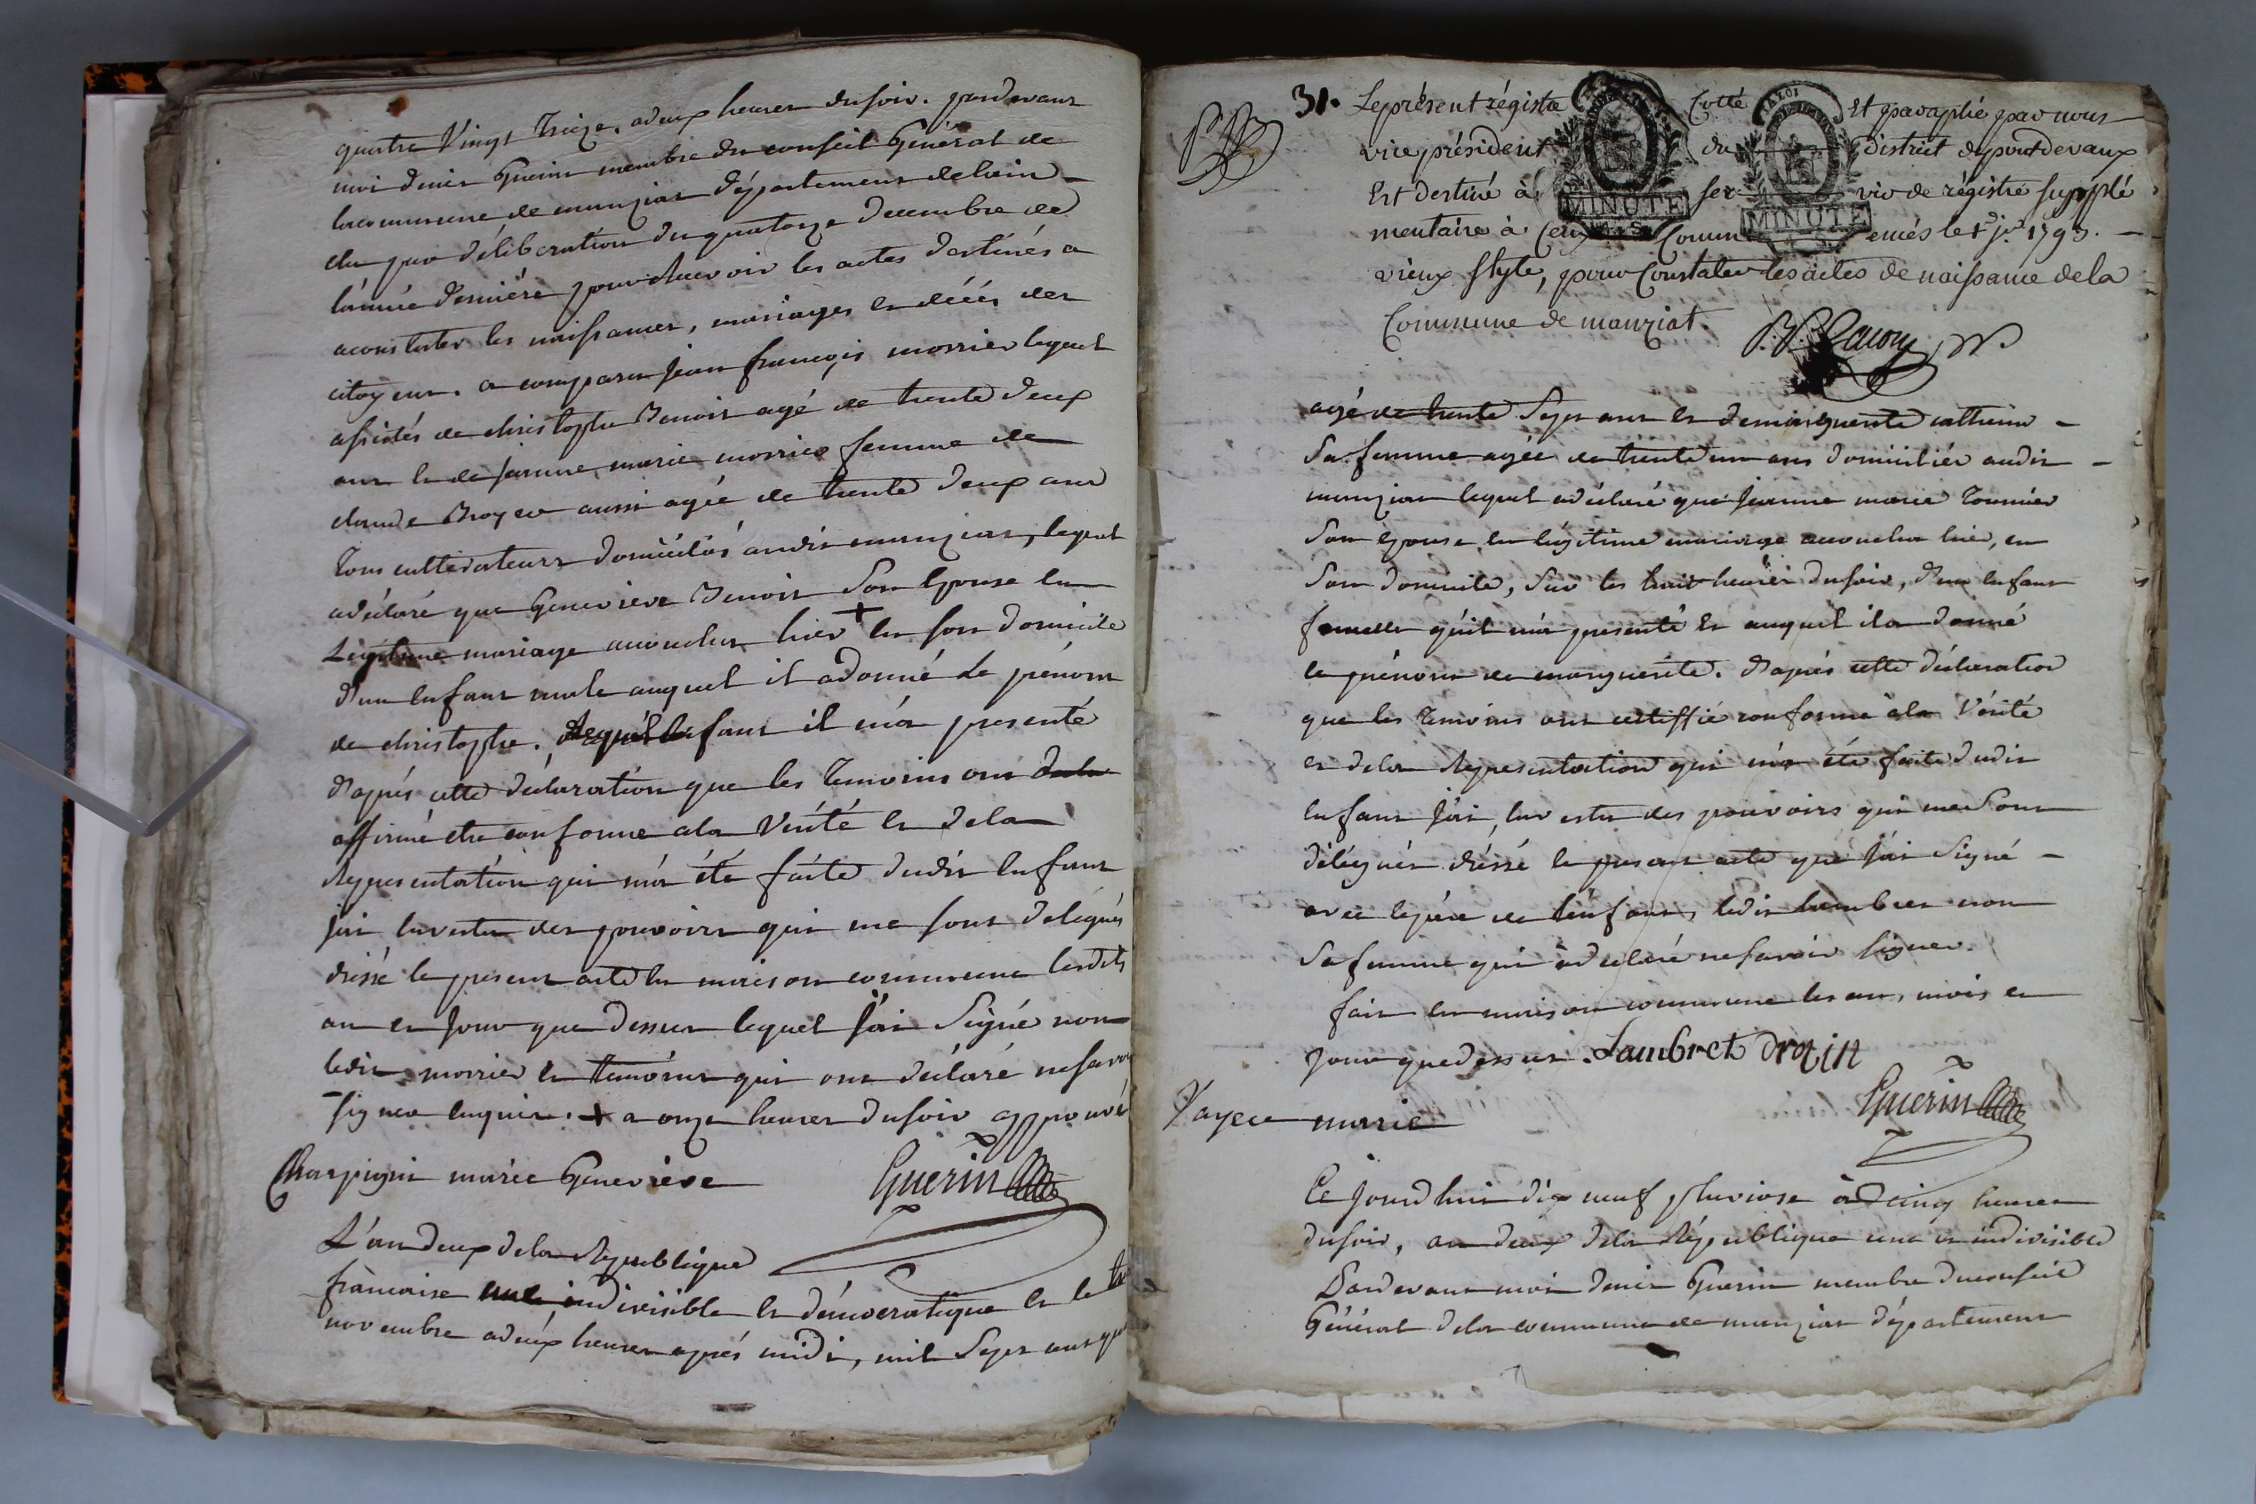 quatre Vingt Treize, a deux heures du soir. pardevant
moi denis Guerin membre du conseil Général de
la commune de manziat département de l'ain
elu par délibération du quatorze decembre de
l'année dernière pour Recevoir les actes destinés a
aconstater les naissances, mariages et décés des
citoyens. a comparu jean françois morrier lequel
assistés de christophe Benoit agé de trente deux
ans et de janne marie morrier femme de
claude Broyer aussi agée de trente deux ans
Tous cultivateurs domiciliés audit manziat, lequel
a déclaré que Genevieve Benoit Son Epouse En
Légitime mariage accouchat hier + En son domicile
d'un Enfant male auquel il a donné le prénom
de christophe. Lequel Enfant il m'a presenté
d'après cette déclaration que les Temoins ont
affirmé etre conforme a la Vérité et de la
Representation qui m'a été faite dudit Enfant
j'ai En vertu des pouvoirs qui me sont delegués
dréssé le present acte En maison commune lesdits
an et Jour que dessus lequel J'ai Signé non
ledit morrier et temoins qui ont déclaré ne savoir
signer Enquis. + a onze heures du soir approuvé
Charpignin mariée Genevieve
Guerin
L'an deux de la Republique
françoise une indivisible et démocratique et le
novembre a deux heures après midi, mil Sept cent
31. Le présent régistre Cotté Et paraphé par nous
vice président du District de pont de vaux
Est destiné à ser vir de régistre supplé
mentaire à Ceux Comm encés le 1er jer 1793.
vieux Style, pour Constater les actes de naissance de la
Commune de manziat.
MINUTE
MINUTE
agé de trente Sept ans et de marguerite catherin
Sa femme agée de trente un ans domiciliés audit
manziat lequel a déclaré que Jeanne marie Tournier
Son Epouse En légitime mariage accouchat hier, en
Son domicile, Sur les huit heures du soir, d'un Enfant
femelle qu'il m'a presenté et auquel il a donné
le prénom de marguerite. D'après cette déclaration
que les Temoins ont certiffié conforme à la Vérité
et de la Representation qui m'a été faite dudit
Enfant J'ai, En vertu des pouvoirs qui me Sont
délégués dréssé le present acte que J'ai Signé
avec le père de l'enfant, ledit lambret non
Sa femme qui a déclaré ne savoir signer.
fait En maison commune les an, mois et
Jour que dessus. Lambret drozin
Guerin
Payece marie
Ce Jourd'hui dix neuf pluviose à cinq heures
du soir, an deux De la République une et indivisible
Pardevant moi denis Guerin membre du conseil
Général de la commune de manziat département